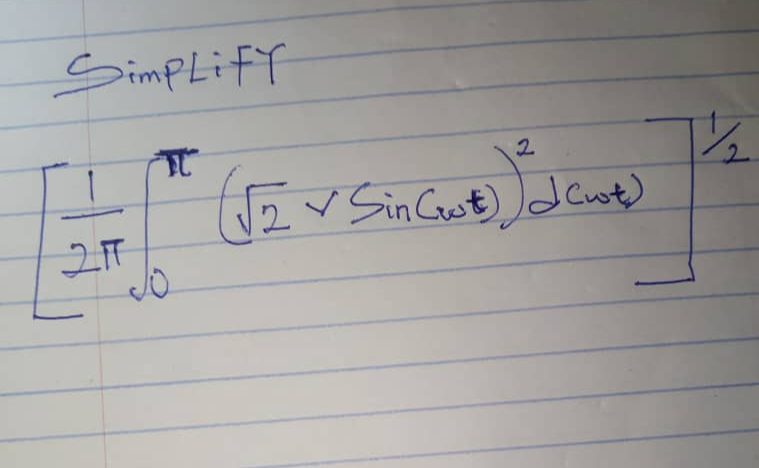 SimpLiFY
[1/2π ∫₀^π (√2 v Sin(wt))² d(wt)]^1/2